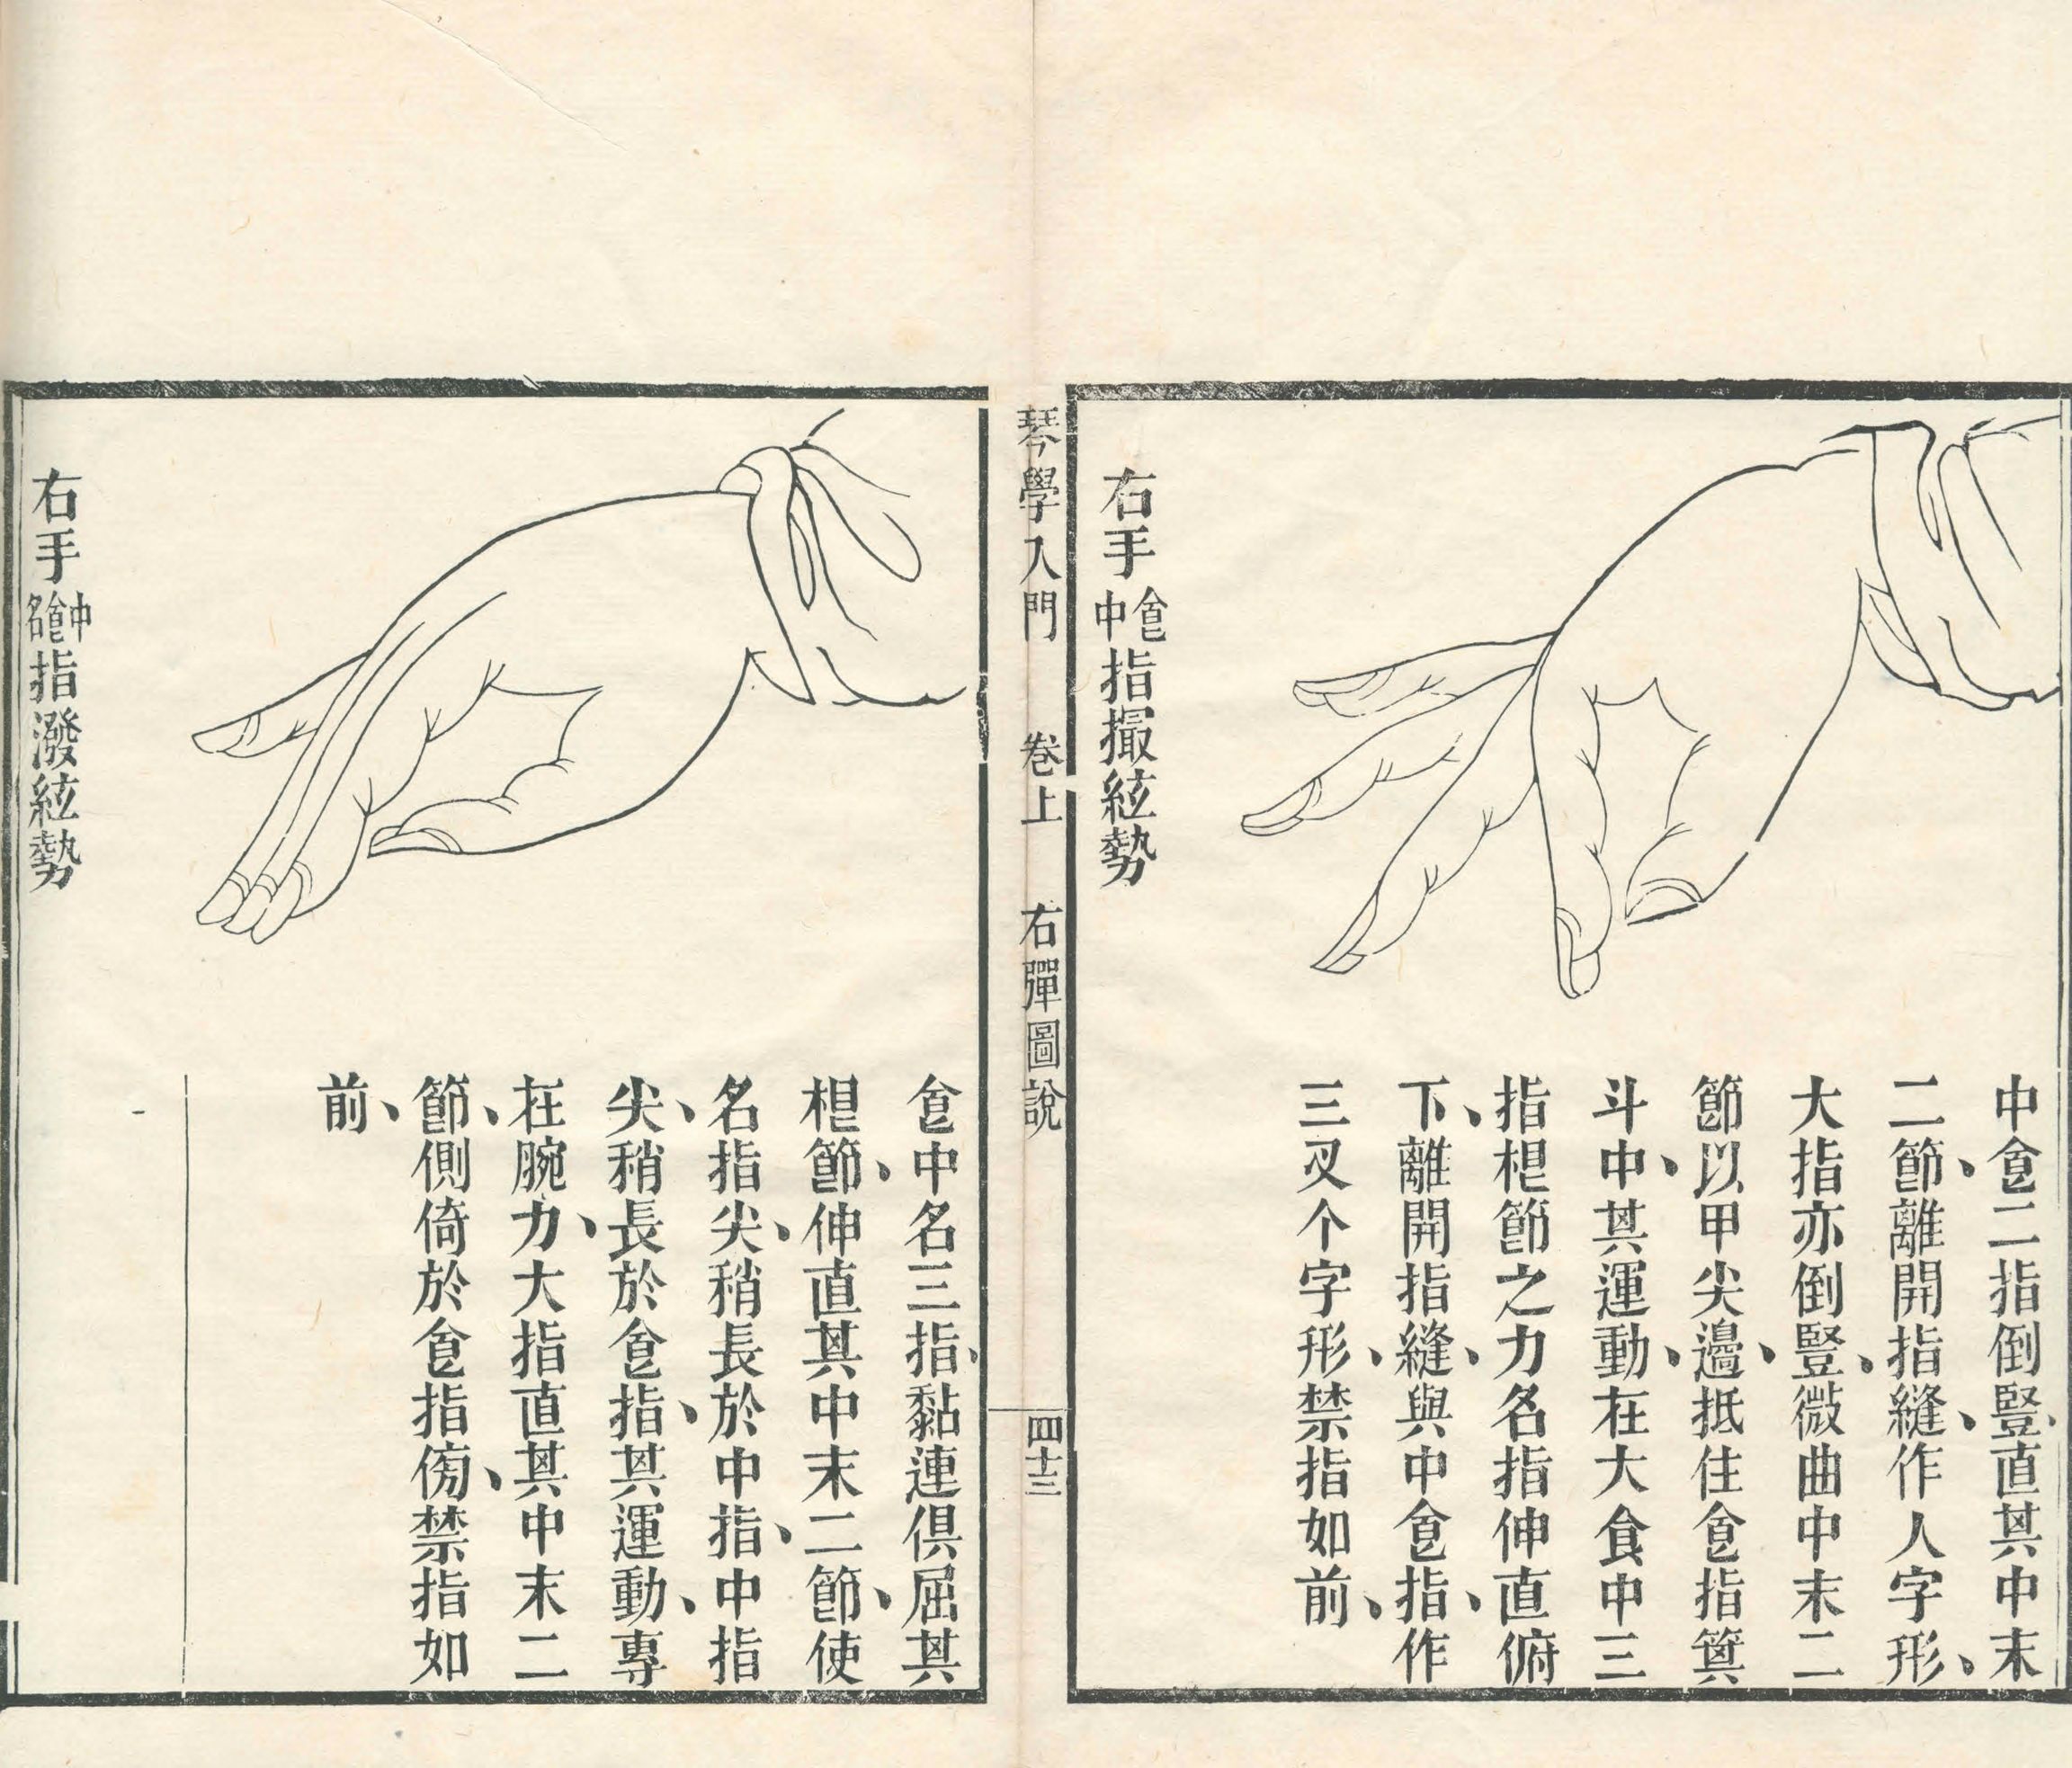 中食二指倒豎直其中末
二節、離開指縫、作人字形、
大指亦倒豎、微曲中末二
節以甲尖邊、抵住食指箕
斗中、其運動、在大食中三
指根節之力名指伸直俯
下、離開指縫、與中食指、作
三叉个字形、禁指如前、
右手食中指撮絃勢
琴學入門 卷上 右彈圖說 四十三
食中名三指、黏連俱屈其
根節、伸直其中末二節、使
名指尖、稍長於中指、中指
尖、稍長於食指、其運動、專
在腕力、大指直其中末二
節、側倚於食指傍、禁指如
前、
右手中食名指潑絃勢